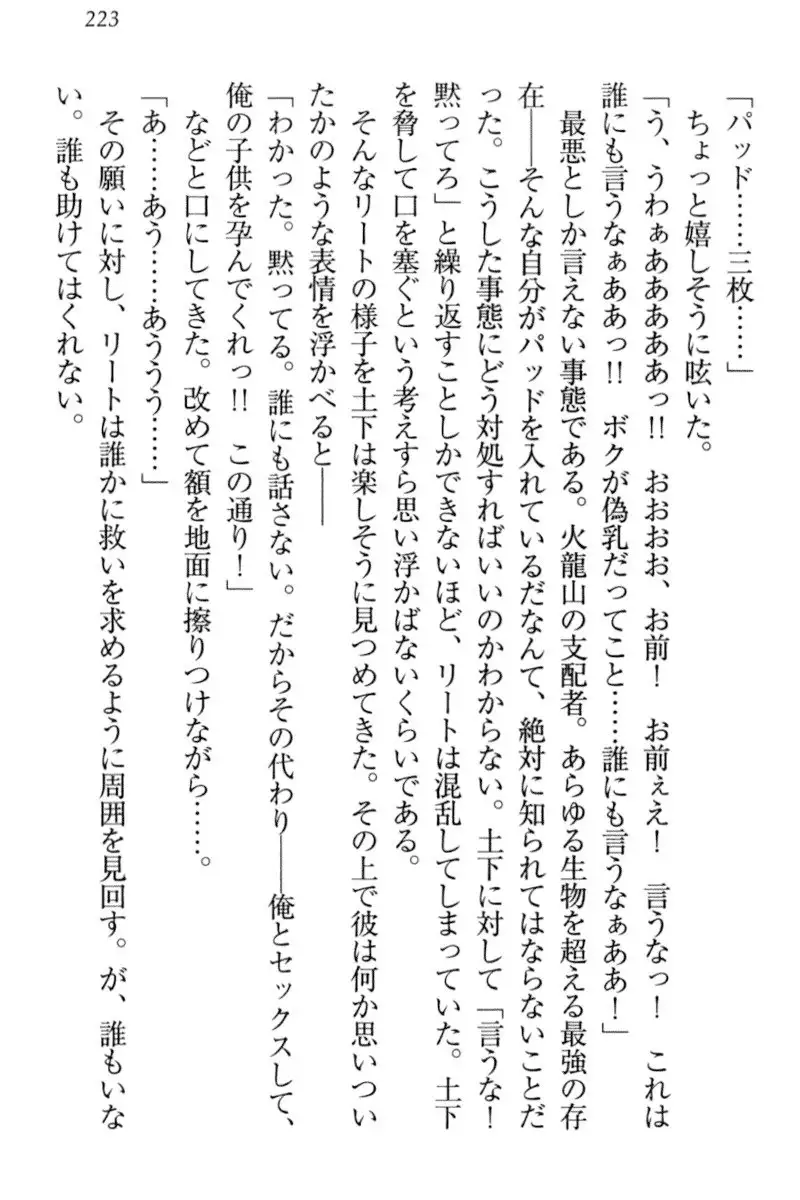 223
「パッド……三枚……」
　ちょっと嬉しそうに呟いた。
「う、うわぁああああっ!!　おおおお、お前！　お前ぇえ！　言うなっ！　これは
誰にも言うなぁああっ!!　ボクが偽乳だってこと……誰にも言うなぁああ！」
　最悪としか言えない事態である。火龍山の支配者。あらゆる生物を超える最強の存
在――そんな自分がパッドを入れているだなんて、絶対に知られてはならないことだ
った。こうした事態にどう対処すればいいのかわからない。土下に対して「言うな！
黙ってろ」と繰り返すことしかできないほど、リートは混乱してしまっていた。土下
を脅して口を塞ぐという考えすら思い浮かばないくらいである。
　そんなリートの様子を土下は楽しそうに見つめてきた。その上で彼は何か思いつい
たかのような表情を浮かべると――
「わかった。黙ってる。誰にも話さない。だからその代わり――俺とセックスして、
俺の子供を孕んでくれっ!!　この通り！」
　などと口にしてきた。改めて額を地面に擦りつけながら……。
「あ……あう……あううう……」
　その願いに対し、リートは誰かに救いを求めるように周囲を見回す。が、誰もいな
い。誰も助けてはくれない。